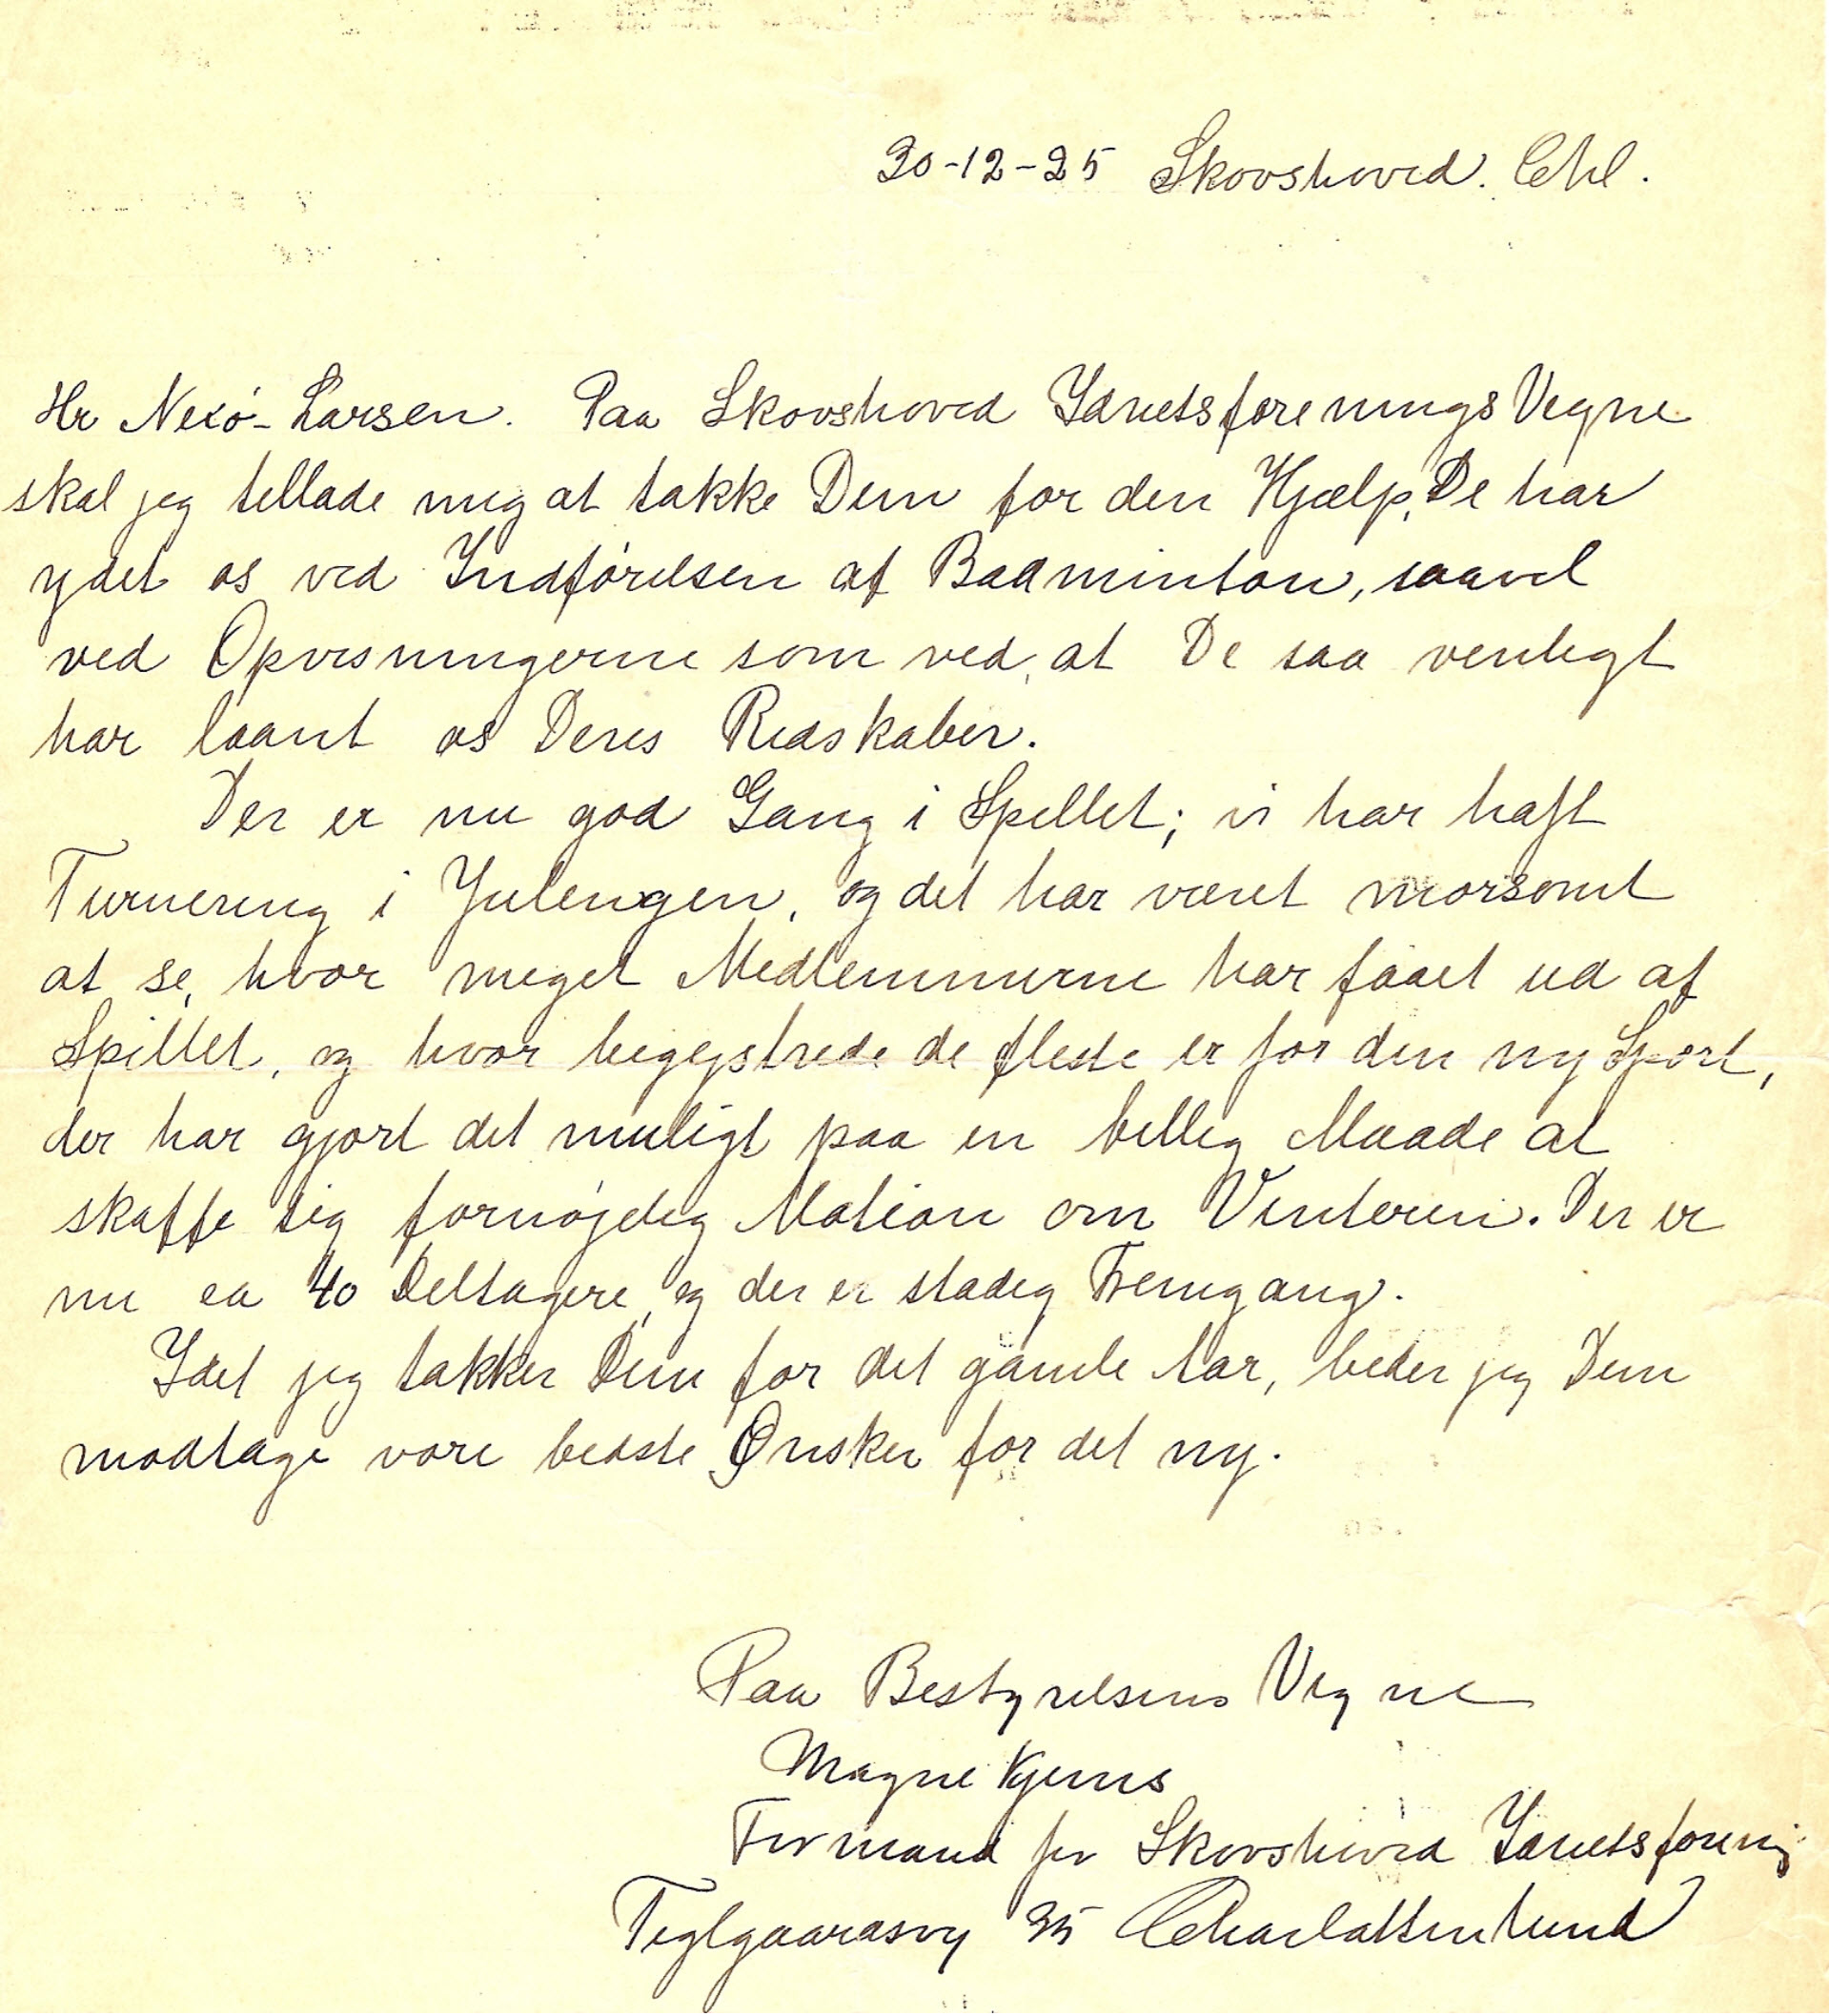 30-12-25 Skovshoved. Chl.
Hr Nexö-Larsen. Paa Skovshoved Idrætsforenings Vegne
skal jeg tillade mig at takke Dem for den Hjælp, De har
ydet os ved Indførelsen af Badminton, saavel
ved Opvisningerne som ved, at De saa venligt
har laant os Deres Redskaber.
Der er nu god Gang i Spillet; vi har haft
Turnering i Julen, og det har været morsomt
at se, hvor meget Medlemmerne har faaet ud af
Spillet, og hvor begejstrede de fleste er for den ny Sport,
der har gjort det muligt paa en billig Maade at
skaffe sig fornøjelig Motion om Vinteren. Der er
nu ca 40 Deltagere, og der er stadig Fremgang.
Idet jeg takker Dem for det gamle Aar, beder jeg Dem
modtage vore bedste Ønsker for det ny.
Paa Bestyrelsens Vegne
Magne Kjems
Formand for Skovshoved Idrætsforening
Teglgaardsvej 35 Charlottenlund